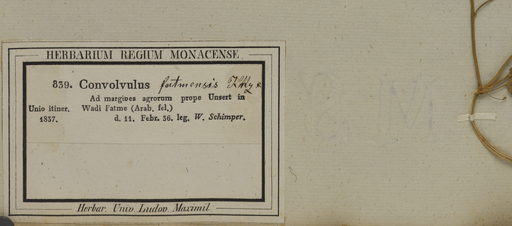 HERBARIUM REGIUM MONACENSE
839. Convolvulus fatmensis
Ad margines agrorum prope Unsert in
Unio itiner. Wadi Fatme (Arab. fel.)
1837. d. 11. Febr. 36. leg. W. Schimper.
Herbar. Univ. Ludov. Maximil